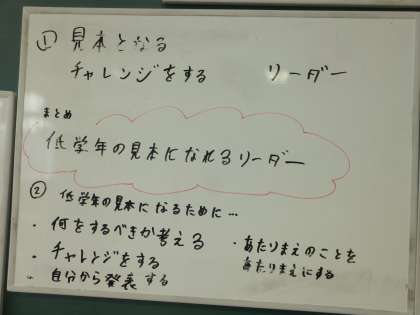 ① 見本となる
チャレンジをする リーダー
・まとめ
低学年の見本になれるリーダー
② 低学年の見本になるために…
・何をするべきか考える
・チャレンジをする
・自分から発表する
・あたりまえのことを
あたりまえにする